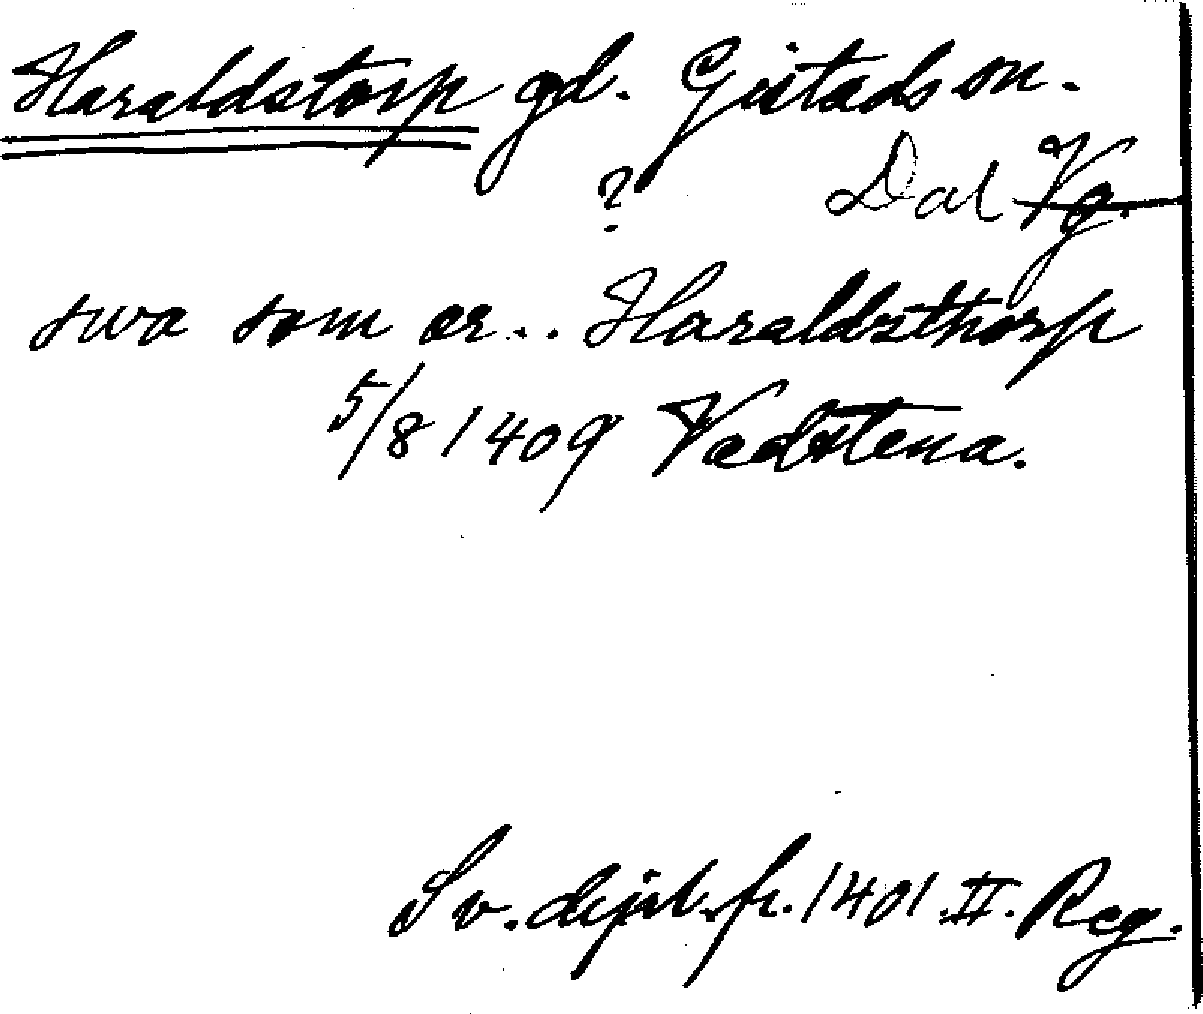 Haraldstorp gd. Gestads sn.
? Dal Vg.
swa som ær... Haraldzthorp
5/8 1409 Vadstena.
Sv. dipl. fr. 1401. II. Reg.